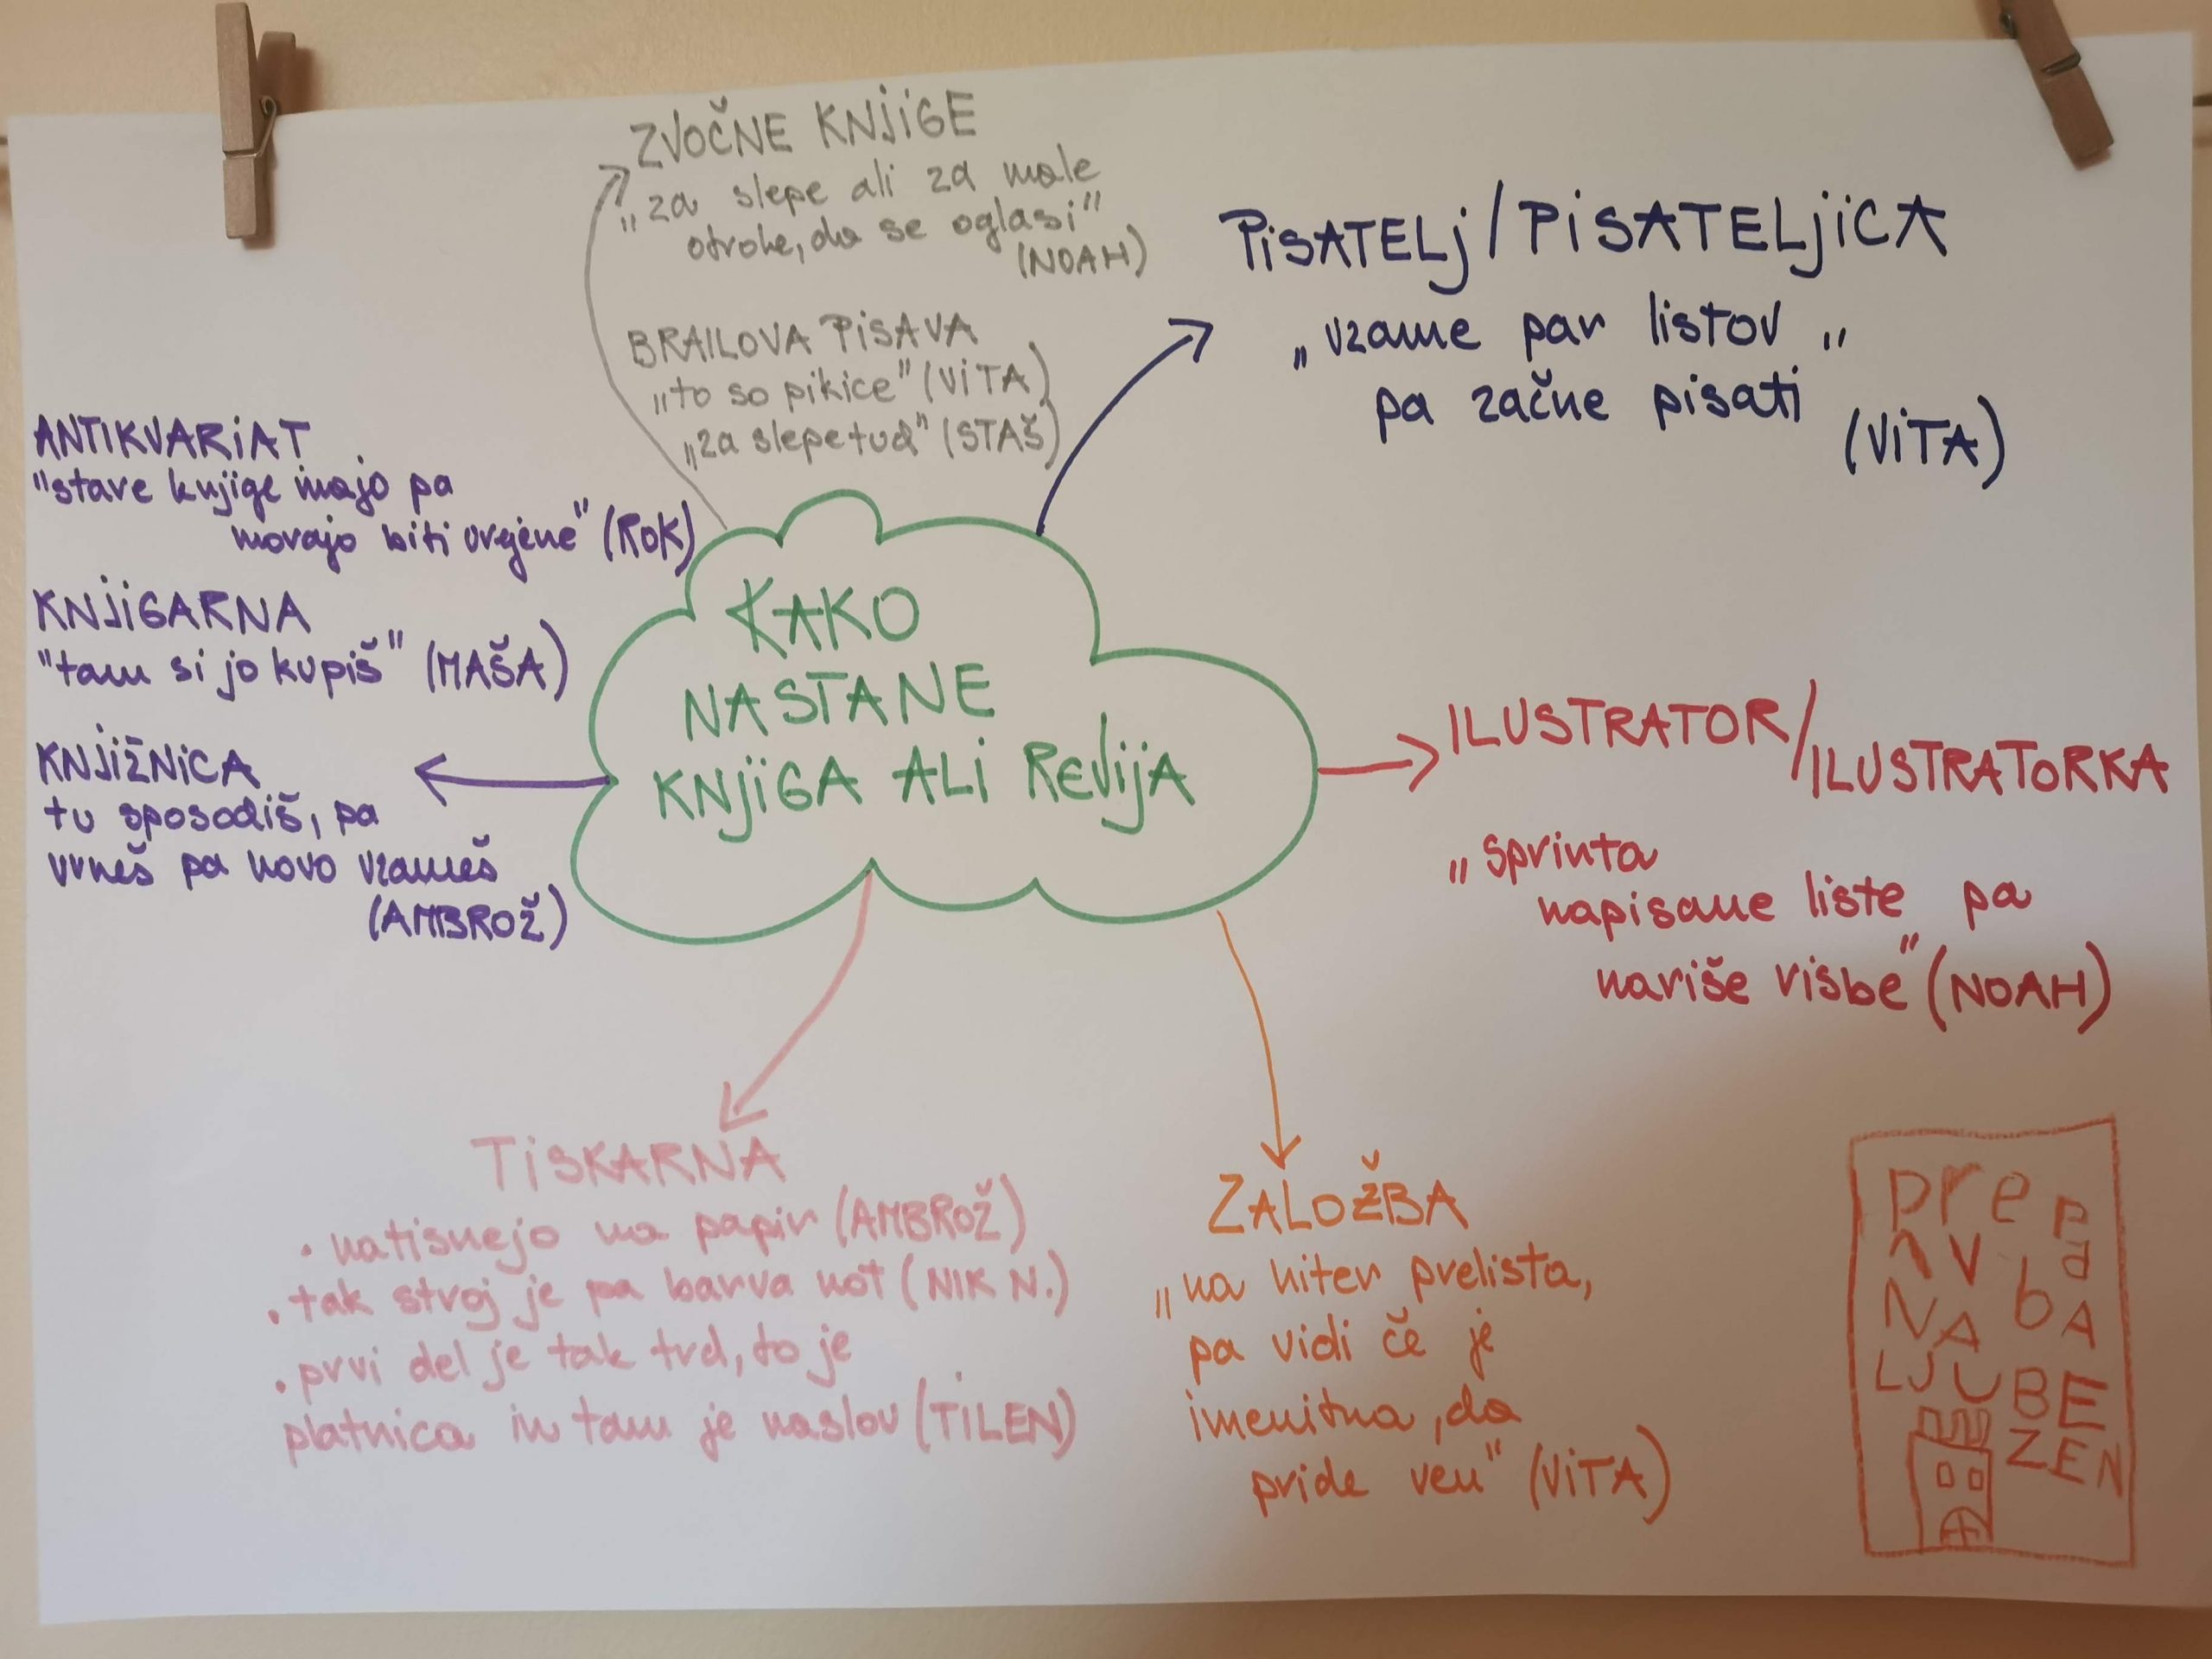 ZVOČNE KNJIGE
„za slepe ali za male
otroke, da se oglasi"
(NOAH)
BRAILOVA PISAVA
„to so pikice" (VITA)
„za slepe tud" (STAŠ)
PISATELJ/PISATELJICA
„vzame par listov „
pa začne pisati
(VITA)
ANTIKVARIAT
"stare knjige majo pa
morajo biti vrjene" (ROK)
KNJIGARNA
"tam si jo kupiš" (MAŠA)
KNJIŽNICA
tu sposodiš, pa
vrneš pa novo vzameš
(AMBROŽ)
KAKO
NASTANE
KNJIGA ALI REVIJA
ILUSTRATOR/
ILUSTRATORKA
„sprinta
napisane liste pa
nariše risbe" (NOAH)
TISKARNA
• natisnejo na papir (AMBROŽ)
• tak stroj je pa barva not (NIK N.)
• prvi del je tak trd, to je
platnica in tam je naslov (TILEN)
ZALOŽBA
„na hiter prelista,
pa vidi če je
imenitna, da
pride ven" (VITA)
pre p
AV
NA
LJUBE
ZEN